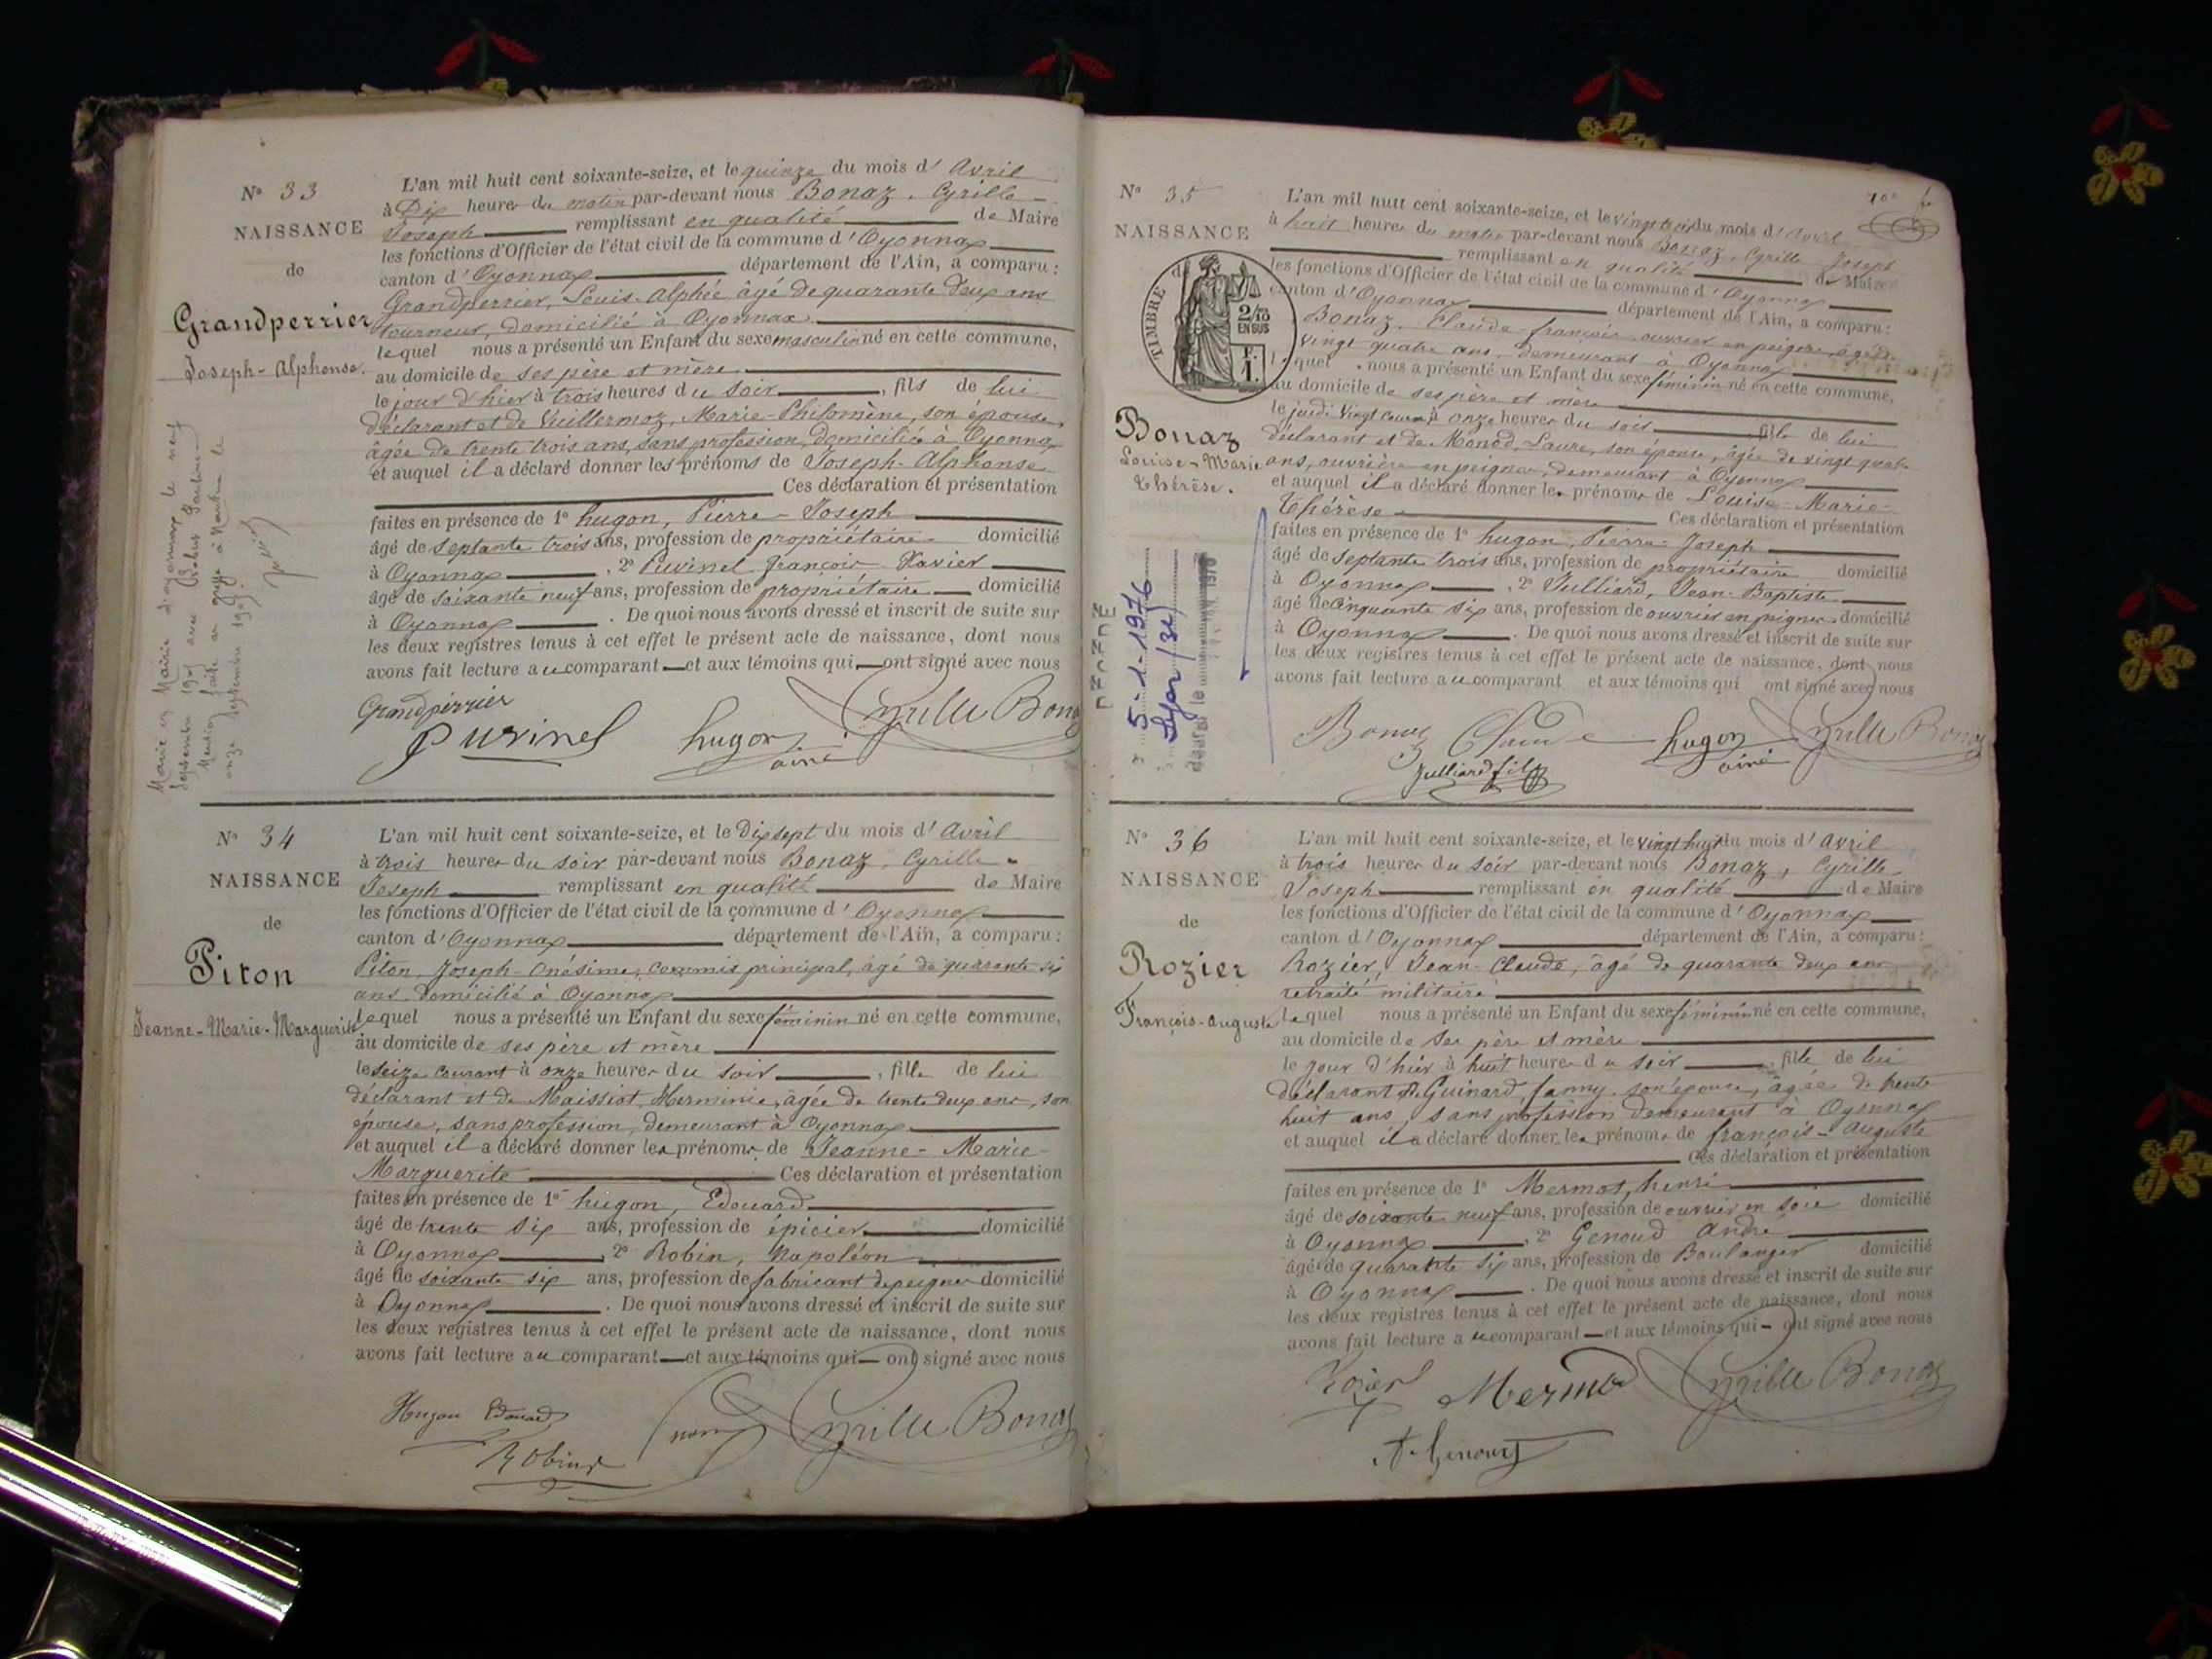 N° 33
NAISSANCE
de
Grandperrier
Joseph-Alphonse.
L'an mil huit cent soixante-seize, et le quinze du mois d'Avril
à Dix heures du matin par-devant nous Bonaz, Cyrille-
Joseph remplissant en qualité de Maire
les fonctions d'Officier de l'état civil de la commune d'Oyonnax
canton d'Oyonnax département de l'Ain, a comparu :
Grandperrier, Louis-Alphée âgé de quarante deux ans
tourneur, domicilié à Oyonnax
lequel nous a présenté un Enfant du sexe masculin né en cette commune,
au domicile de ses père et mère
le jour d'hier à trois heures du soir, fils de lui
déclarant et de Vuillermoz, Marie-Philomène, son épouse,
âgée de trente trois ans, sans profession, domiciliée à Oyonnax
et auquel il a déclaré donner les prénoms de Joseph-Alphonse
Ces déclaration et présentation
faites en présence de 1° hugon, Pierre-Joseph
âgé de septante trois ans, profession de propriétaire domicilié
à Oyonnax, 2° Puvinel françois Xavier
âgé de soixante neuf ans, profession de propriétaire domicilié
à Oyonnax. De quoi nous avons dressé et inscrit de suite sur
les deux registres tenus à cet effet le présent acte de naissance, dont nous
avons fait lecture au comparant et aux témoins qui ont signé avec nous
Grandperrier
Puvinel hugon aîné Cyrille Bonaz
Marié en Mairie d'Oyonnax le neuf
septembre avec
Mention faite au greffe à Nantua le
onze septembre
N° 34
NAISSANCE
de
Piton
Jeanne-Marie-Marguerite
L'an mil huit cent soixante-seize, et le Dix sept du mois d'Avril
à trois heures du soir par-devant nous Bonaz, Cyrille-
Joseph remplissant en qualité de Maire
les fonctions d'Officier de l'état civil de la commune d'Oyonnax
canton d'Oyonnax département de l'Ain, a comparu :
Piton, Joseph-Onésime, commis principal, âgé de quarante six
ans, domicilié à Oyonnax
lequel nous a présenté un Enfant du sexe féminin né en cette commune,
au domicile de ses père et mère
le seize courant à onze heures du soir, fille de lui
déclarant et de Maissiat, Herminie, âgée de trente deux ans, son
épouse, sans profession, demeurant à Oyonnax
et auquel il a déclaré donner les prénoms de Jeanne-Marie-
Marguerite Ces déclaration et présentation
faites en présence de 1° hugon, Edouard
âgé de trente six ans, profession de épicier domicilié
à Oyonnax, 2° Robin, Napoléon
âgé de soixante six ans, profession de fabricant de peignes domicilié
à Oyonnax. De quoi nous avons dressé et inscrit de suite sur
les deux registres tenus à cet effet le présent acte de naissance, dont nous
avons fait lecture au comparant et aux témoins qui ont signé avec nous
Hugon Edouard Cyrille Bonaz
Robin
N° 35
NAISSANCE
TIMBRE
2/10
EN SUS
F.
1.
Bonaz
Louise-Marie
Thérèse.
L'an mil huit cent soixante-seize, et le vingt trois du mois d'Avril
à huit heures du matin par-devant nous Bonaz, Cyrille Joseph
remplissant en qualité de Maire
les fonctions d'Officier de l'état civil de la commune d'Oyonnax
canton d'Oyonnax département de l'Ain, a comparu :
Bonaz, Claude-françois ouvrier en peignes âgé de
vingt quatre ans, demeurant à Oyonnax
lequel nous a présenté un Enfant du sexe féminin né en cette commune,
au domicile de ses père et mère
le jeudi vingt courant à onze heures du soir, fille de lui
déclarant et de Monod, Laure, son épouse, âgée de vingt quatre
ans, ouvrière en peignes, demeurant à Oyonnax
et auquel il a déclaré donner les prénoms de Louise-Marie-
Thérèse Ces déclaration et présentation
faites en présence de 1° hugon, Pierre-Joseph
âgé de septante trois ans, profession de propriétaire domicilié
à Oyonnax, 2° Julliard, Jean-Baptiste
âgé de cinquante six ans, profession de ouvrier en peignes domicilié
à Oyonnax. De quoi nous avons dressé et inscrit de suite sur
les deux registres tenus à cet effet le présent acte de naissance, dont nous
avons fait lecture au comparant et aux témoins qui ont signé avec nous
Bonaz Claude hugon aîné Cyrille Bonaz
Julliard fils
5-1-1976
Lyon
N° 36
NAISSANCE
de
Rozier
François-Auguste
L'an mil huit cent soixante-seize, et le vingt huit du mois d'Avril
à trois heures du soir par-devant nous Bonaz, Cyrille-
Joseph remplissant en qualité de Maire
les fonctions d'Officier de l'état civil de la commune d'Oyonnax
canton d'Oyonnax département de l'Ain, a comparu :
Rozier, Jean-Claude, âgé de quarante deux ans
retraité militaire
lequel nous a présenté un Enfant du sexe féminin né en cette commune,
au domicile de ses père et mère
le jour d'hier à huit heures du soir, fille de lui
déclarant & Guinard, fanny, son épouse, âgée de trente
huit ans, sans profession demeurant à Oyonnax
et auquel il a déclaré donner les prénoms de françois-Auguste
Ces déclaration et présentation
faites en présence de 1° Mermet, henri
âgé de soixante neuf ans, profession de ouvrier en soie domicilié
à Oyonnax, 2° Genoud André
âgé de quarante six ans, profession de Boulanger domicilié
à Oyonnax. De quoi nous avons dressé et inscrit de suite sur
les deux registres tenus à cet effet le présent acte de naissance, dont nous
avons fait lecture au comparant et aux témoins qui ont signé avec nous
Rozier Mermet Cyrille Bonaz
A. Genoud